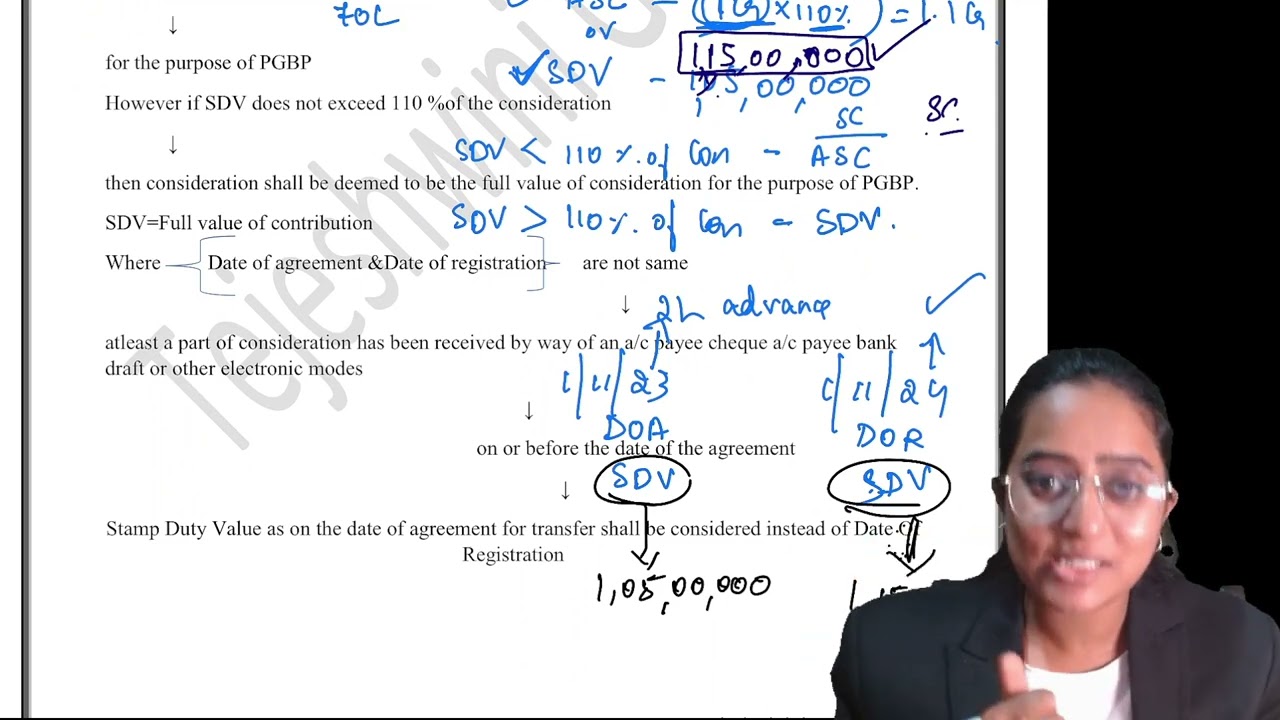 ASC - (1 Cr × 110%) = 1.1 Cr
FOC
or
1,15,00,000
for the purpose of PGBP
SDV - 1,15,00,000
However if SDV does not exceed 110 %of the consideration
SC
SC
SDV < 110 %. of Con - ASC
then consideration shall be deemed to be the full value of consideration for the purpose of PGBP.
SDV=Full value of contribution
SDV > 110 %. of Con - SDV.
Where Date of agreement &Date of registration are not same
2L advance
atleast a part of consideration has been received by way of an a/c payee cheque a/c payee bank
draft or other electronic modes
1/11/23 1/11/24
DOA DOR
on or before the date of the agreement
SDV SDV
Stamp Duty Value as on the date of agreement for transfer shall be considered instead of Date Of
Registration
1,05,00,000
Tejeshwini